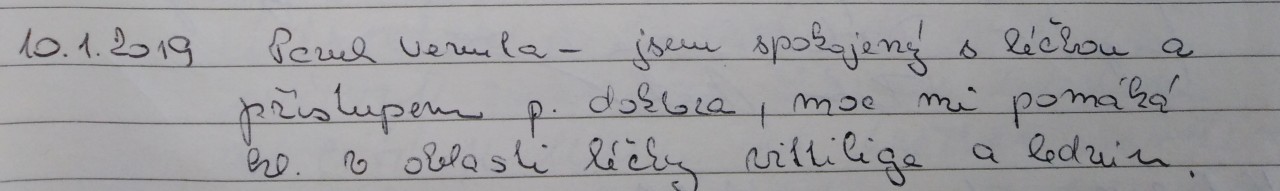 10.1.2019 Pavel Vermla – jsem spokojený s léčbou a
přístupem p. doktora, moc mi pomáhá
v oblasti léčby vittiliga a ledvin.